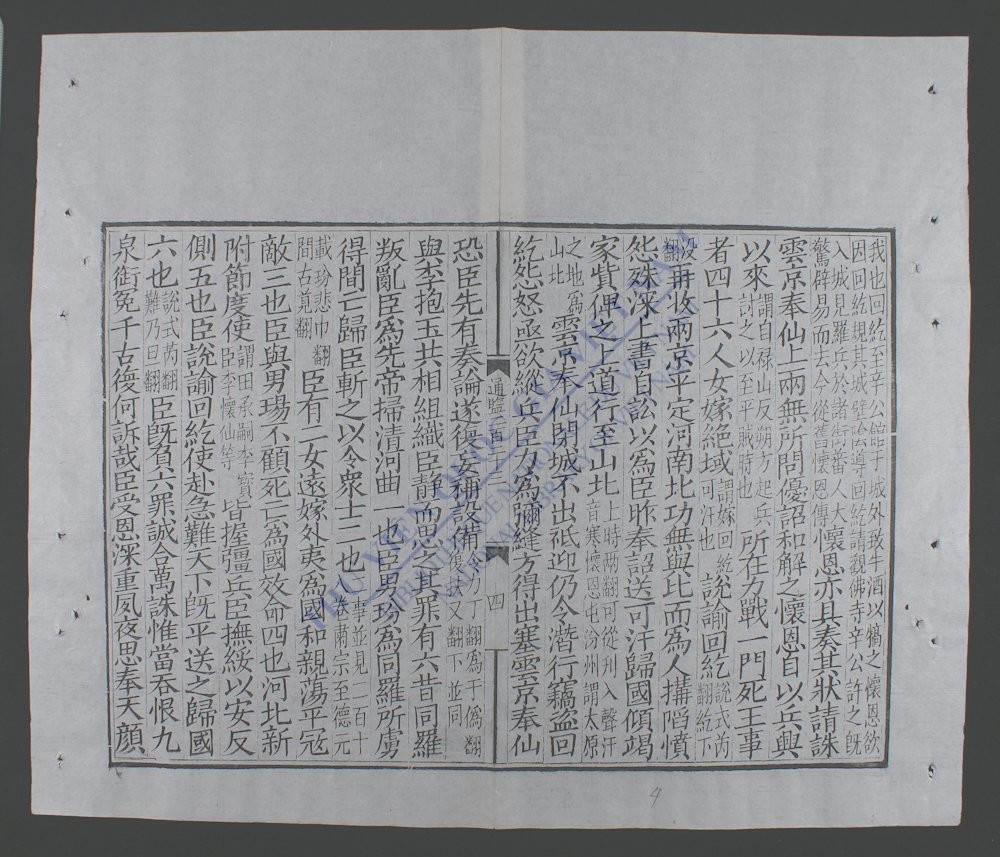 我也回紇至辛公館于城外致牛酒以犒之懷恩欲
因回紇規其城壁紿導回紇請觀佛寺辛公許之旣
入城見羅兵於諸街番人大
驚辟易而去今從舊懷恩傳懷恩亦具奏其狀請誅
雲京奉仙上兩無所問優詔和解之懷恩自以兵興
以來謂自祿山反朔方起兵討之以至平賊時也所在力戰一門死王事
者四十六人女嫁絕域謂嫁回紇可汗也說諭回紇說式芮翻紇下
沒翻再收兩京平定河南北功無與比而爲人搆陷憤
怨殊深上書自訟以爲臣昨奉詔送可汗歸國傾竭
家貲俾之上道行至山北上時兩翻可從刋入聲汗音寒懷恩屯汾州謂太原
之地爲山北雲京奉仙閉城不出祗迎仍令潛行竊盜回
紇怨怒亟欲縱兵臣力爲彌縫方得出塞雲京奉仙
通鑑二百二十三
四
恐臣先有奏論遂復妄稱設備力丁翻爲于僞翻復扶又翻下並同
與李抱玉共相組織臣靜而思之其罪有六昔同羅
叛亂臣爲先帝掃清河曲一也臣男玢爲同羅所虜
得間亡歸臣斬之以令衆士二也事並見二百十卷肅宗至德元
載玢悲巾翻間古莧翻臣有二女遠嫁外夷爲國和親蕩平寇
敵三也臣與男瑒不顧死亡爲國效命四也河北新
附節度使謂田承嗣李寶臣李懷仙等皆握彊兵臣撫綏以安反
側五也臣說諭回紇使赴急難天下旣平送之歸國
六也說式芮翻難乃旦翻臣旣負六罪誠合萬誅惟當吞恨九
泉銜冤千古復何訴哉臣受恩深重夙夜思奉天顏
THƯ VIỆN QUỐC GIA VIỆT NAM
NATIONAL LIBRARY OF VIETNAM
4